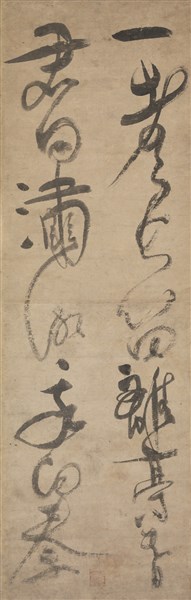 一聲笛離亭晚
君向瀟湘我向秦